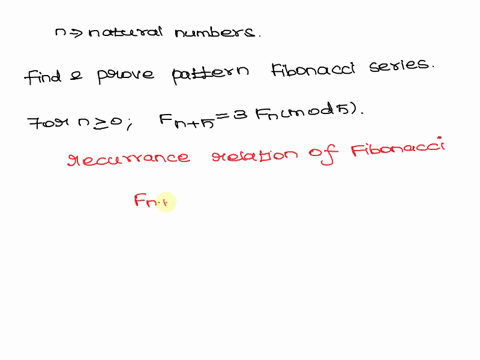 n⇒natural numbers.
find & prove pattern Fibonacci series.
For n≥0; Fn+5 = 3 Fn(mod5).
recurrance relation of Fibonacci
Fn+